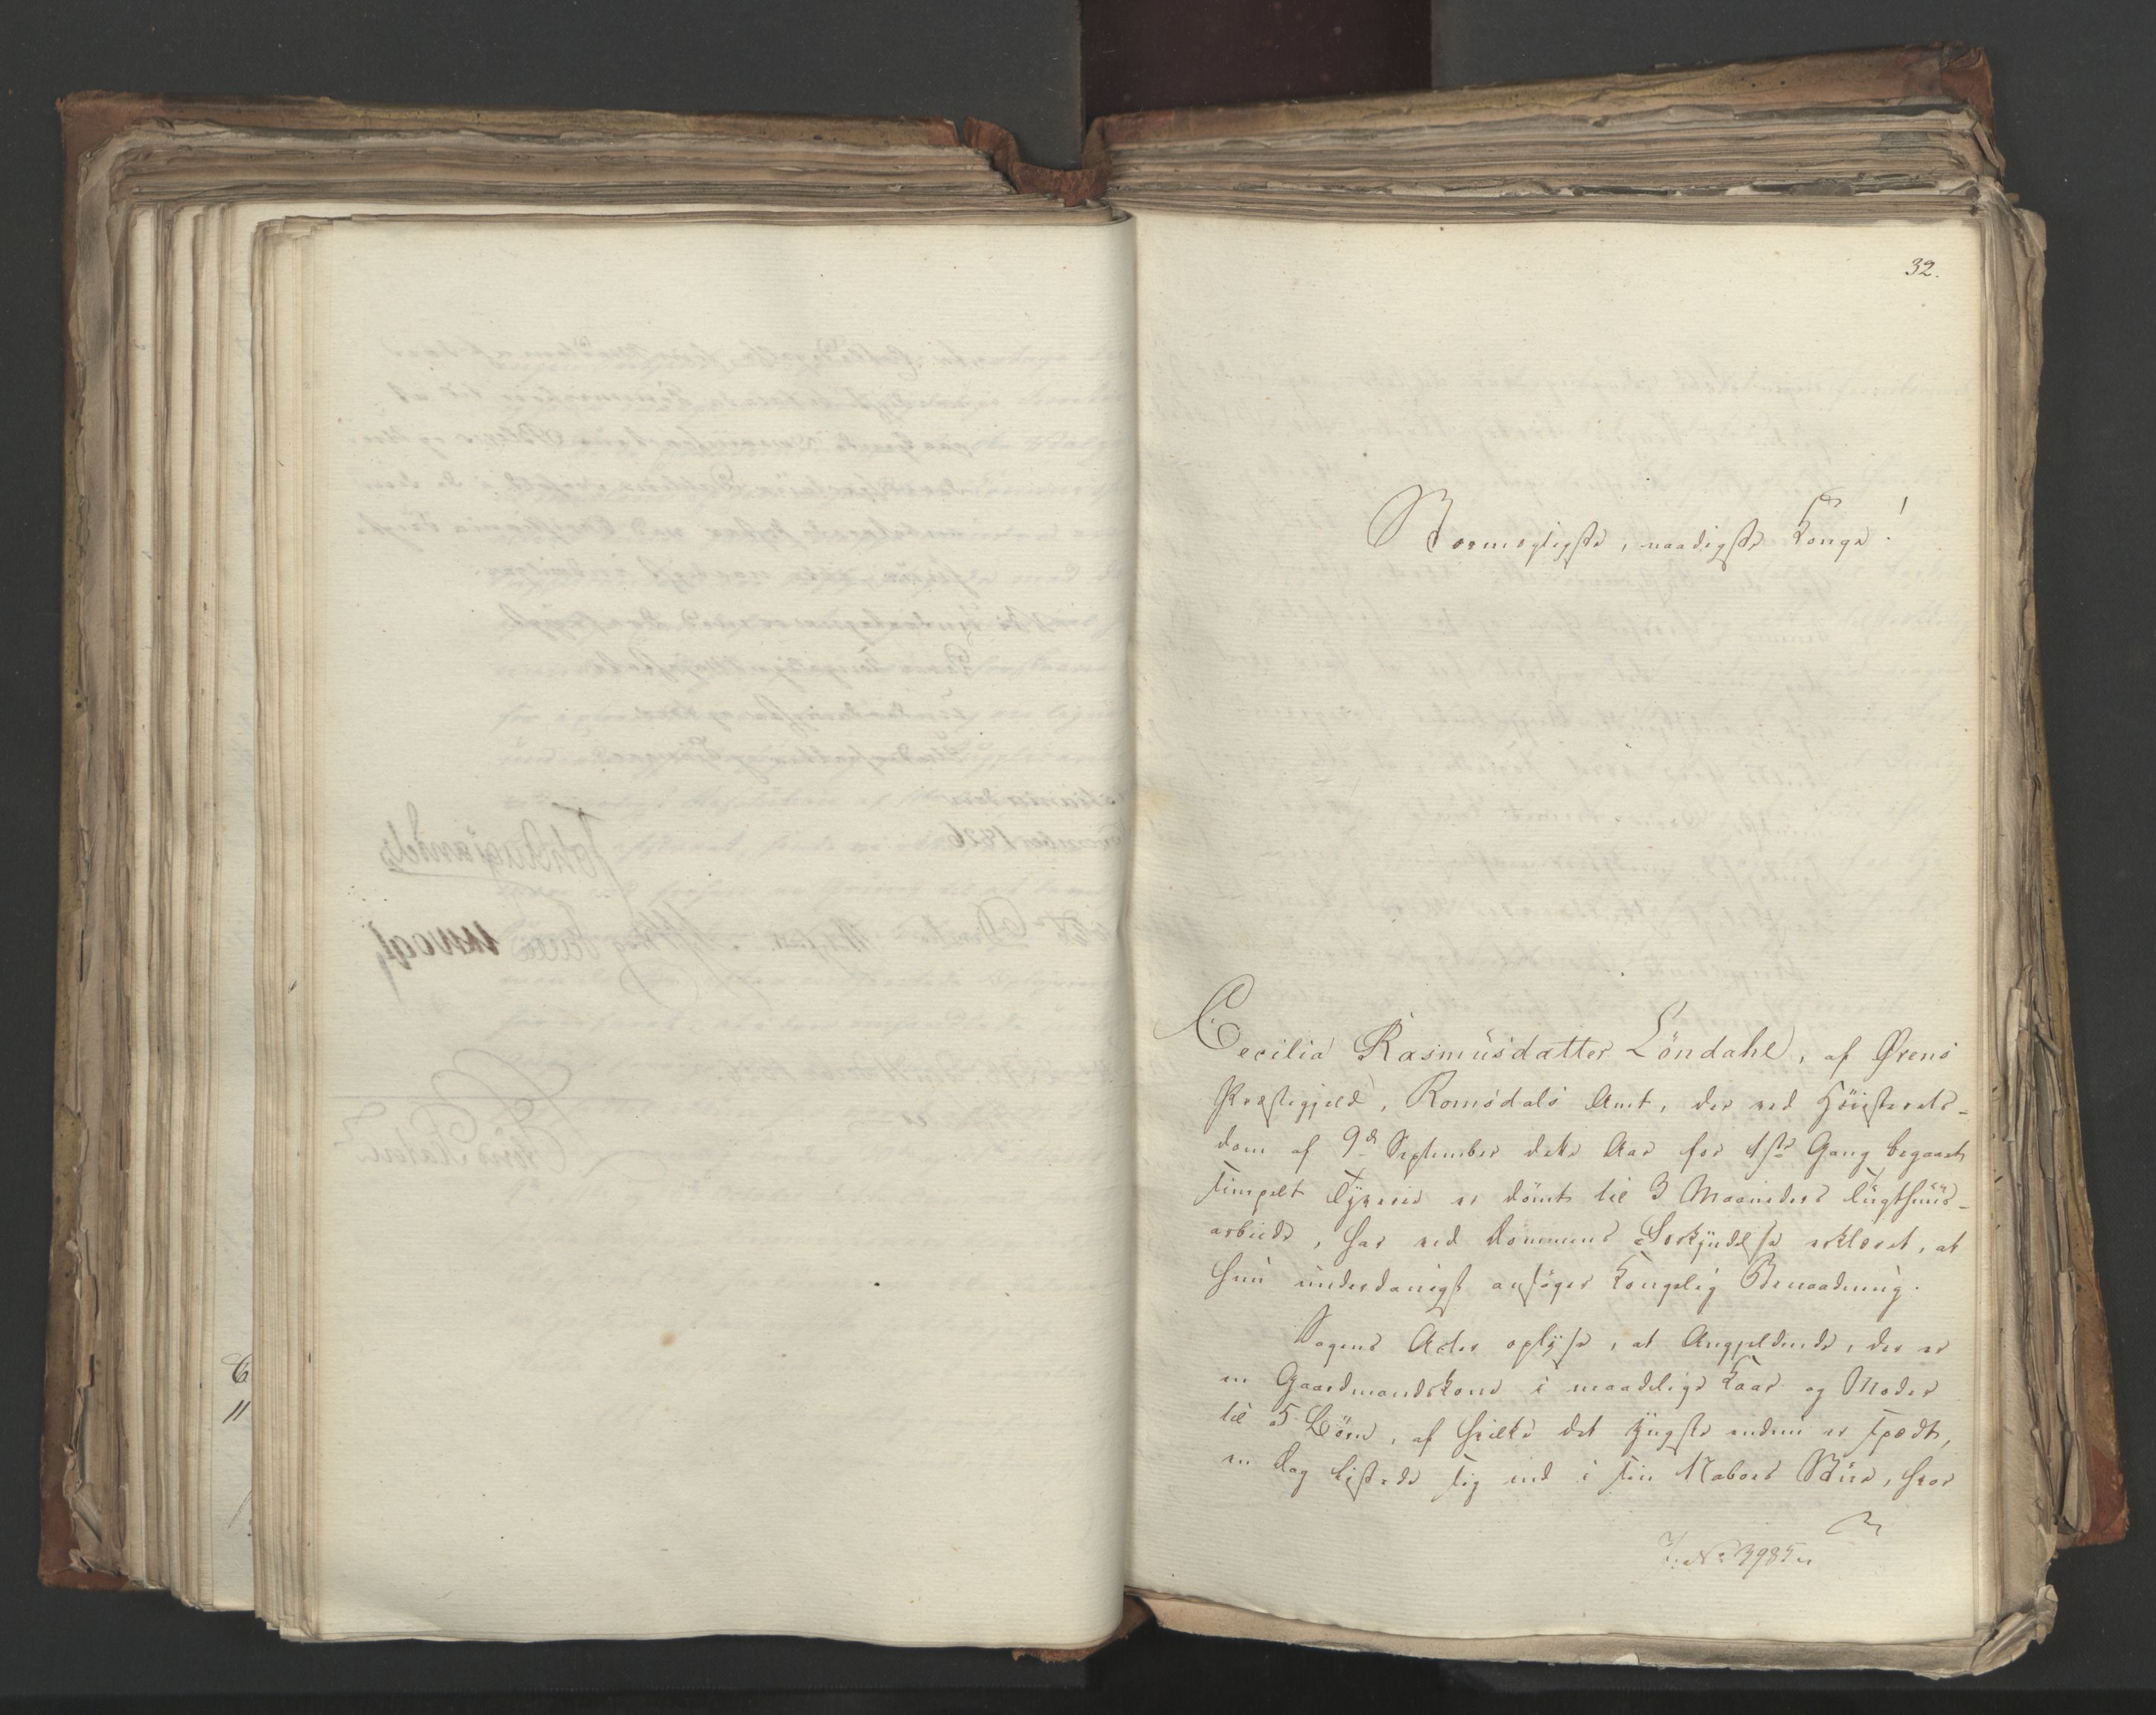 32.
Stormægtigste, naadigste Konge!
Cecilia Rasmusdatter Löndahl, af Örens
Præstegjeld, Romsdals Amt, der ved Höiesterets-
dom af 9de September dette Aar for 1ste Gang begaaet
simpelt Tyverie er dömt til 3 Maaneders Tugthuus-
arbeide, har ved Dommens Forkyndelse erklæret, at
hun underdanigst ansöger Kongelig Benaadning.
Sagens Acter oplyse, at Angjeldende, der er
en Gaardmandskone i maadelige Kaar og Moder
til 5 Börn, af hvilke det yngste endnu er spædt,
en Dag listede sig ind i sin Naboes Stue, hvor
J. No 3985